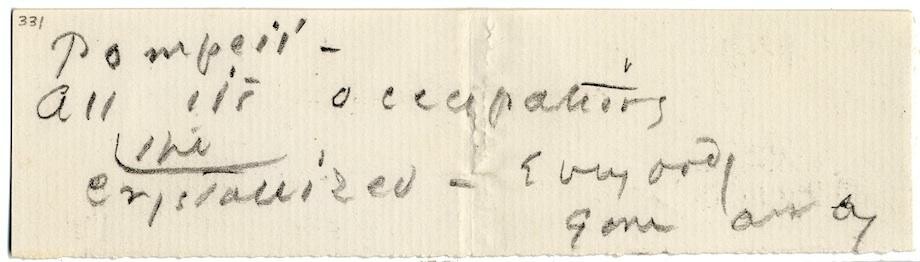 331
Pompeii -
All its occupations
the
Crystallized - Everybody
gone away